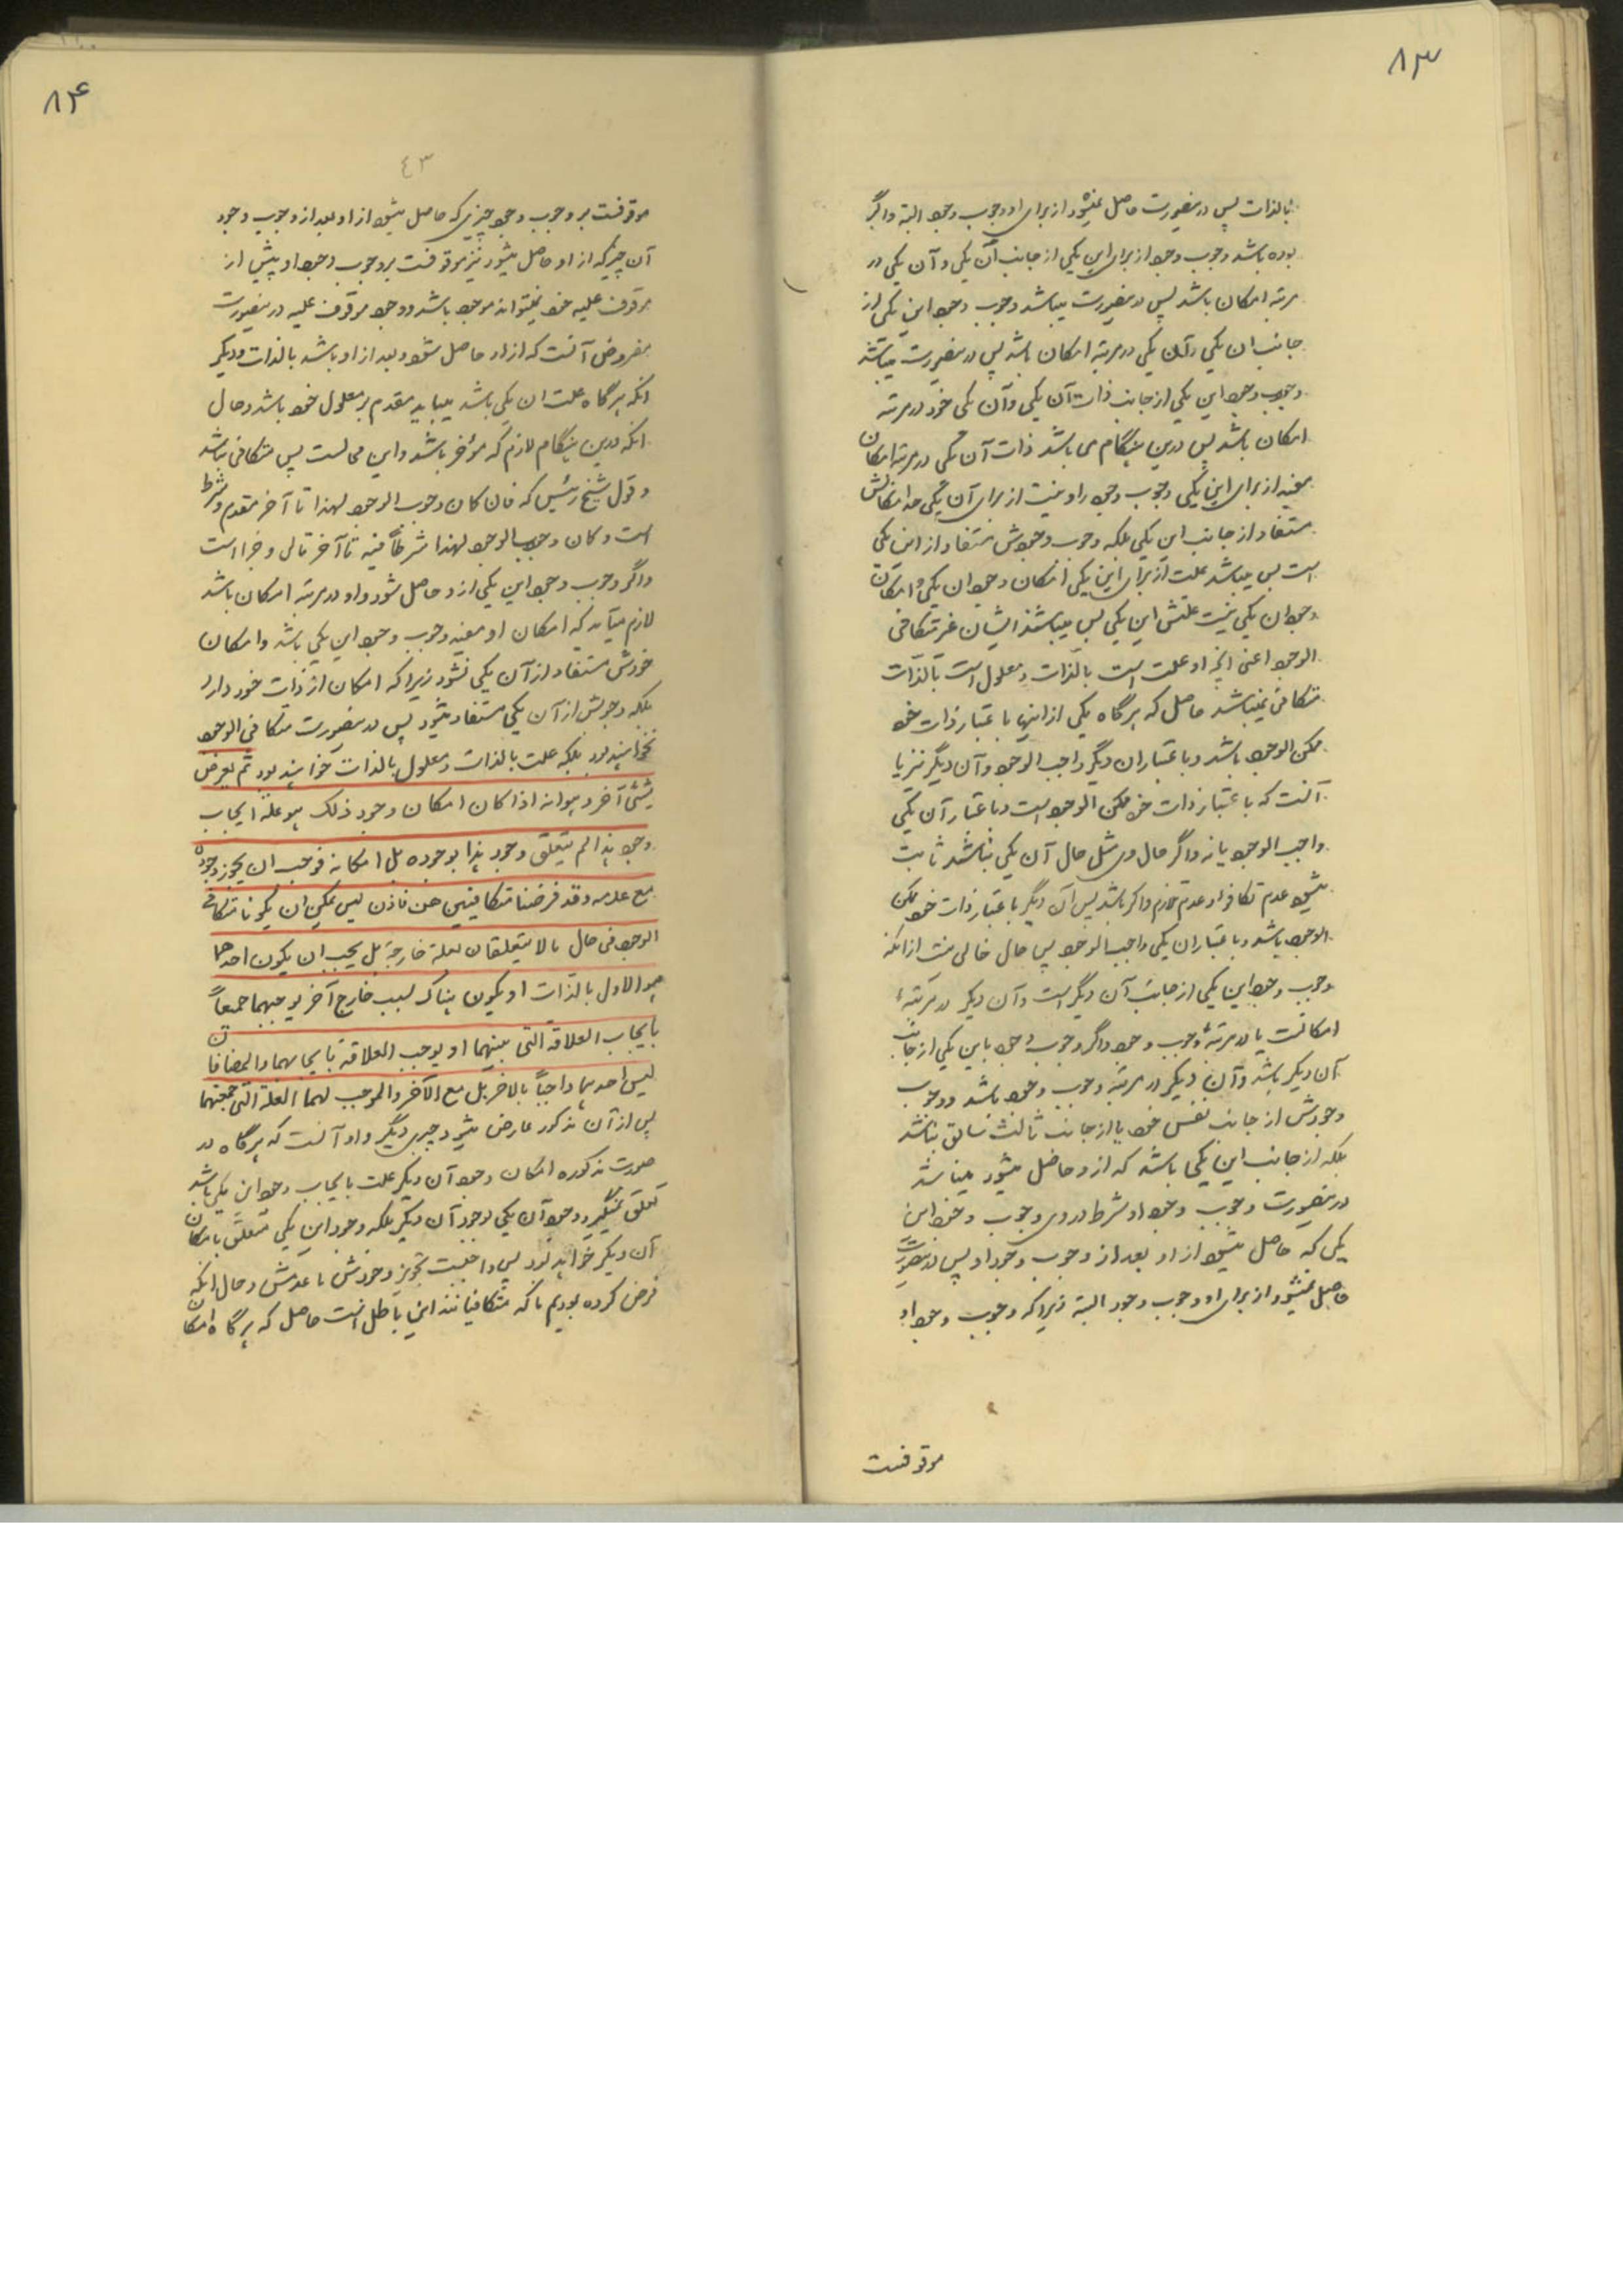 ۸۳
بالذات پس درینصورت حاصل نمیشود از برای او وجوب وجود البته و اگر
بوده باشد وجوب وجود از برای این یکی از جانب آن یکی و آن یکی در
مرتبه امکان باشد پس درینصورت میباشد وجوب وجود این یکی از
جانب ان یکی و آن یکی در مرتبه امکان باشد پس درینصورت میباشد
وجوب وجود این یکی از جانب ذات آن یکی و آن یکی خود در مرتبه
امکان باشد پس درین هنگام می باشد ذات آن یکی در مرتبه امکان
مفید از برای این یکی وجوب وجود را و نیست از برای آن یکی حد امکانش
مستفاد از جانب این یکی بلکه وجوب وجودش مستفاد از این یکی
است پس میباشد علت از برای این یکی امکان وجود ان یکی و امکان
وجود ان یکی نیست علتش این یکی پس میباشند ایشان غیر متکافی
الوجود اعنی انچه او علت است بالذات و معلول است بالذات
متکافی نمیباشد حاصل که هر گاه یکی از اینها باعتبار ذات خود
ممکن الوجود باشد و باعتبار ان دیگر واجب الوجود و آن دیگر نیز یا
آنست که باعتبار ذات خود ممکن الوجود است و باعتبار آن یکی
واجب الوجود یا نه و اگر حال وی مثل حال آن یکی نباشد ثابت
میشود عدم تکافو و عدم تلازم و اگر باشد پس آن دیگر باعتبار ذات خود ممکن
الوجود باشد و باعتبار ان یکی واجب الوجود پس حال خالی نیست از انکه
وجوب وجود این یکی از جانب آن دیگر است و آن دیگر در مرتبهٔ
امکانست یا در مرتبهٔ وجوب وجود و اگر وجوب وجود با این یکی از جانب
آن دیگر باشد و آن دیگر در مرتبه وجوب وجود باشد و وجوب
وجودش از جانب نفس خود یا از جانب ثالث سابق نباشد
بلکه از جانب این یکی باشد که از و حاصل میشود میباشد
درینصورت وجوب وجود او شرط در وی وجوب وجود این
یکی که حاصل میشود از او بعد از وجوب وجود او پس درینصورت
حاصل نمیشود از برای او وجوب وجود البته زیرا که وجوب وجود او
موقوفست
۸۴
٤٣
موقوفست بر وجوب وجود چیزی که حاصل میشود از او بعد از وجوب وجود
آن چیزیکه از او حاصل میشود نیز موقوفست بر وجوب وجود او پیش از
موقوف علیه خود نمیتواند موجود باشد و وجود موقوف علیه درینصورت
مفروض آنست که از او حاصل شود و بعد از او باشد بالذات و دیگر
انکه هر گاه علت ان یکی باشد میباید مقدم بر معلول خود باشد و حال
انکه درین هنگام لازم که مؤخر باشد و این محالست پس متکافی نباشد
و قول شیخ رئیس که فان کان وجوب الوجود لهذا تا آخر مقدم و شرط
است و کان وجوب الوجود لهذا شرطاً فیه تا آخر تالی و جزا است
و اگر وجوب وجود این یکی از و حاصل شود و او در مرتبه امکان باشد
لازم میآید که امکان او مفید وجوب وجود این یکی باشد و امکان
خودش مستفاد از آن یکی نشود زیرا که امکان از ذات خود دارد
بلکه وجوبش از آن یکی مستفاد میشود پس درینصورت متکافی الوجود
نخواهند بود بلکه علت بالذات و معلول بالذات خواهند بود ثم یعرض
شیئی آخر و هو انه اذا کان امکان وجود ذلک هو علة ایجاب
وجود هذا لم یتعلق وجود هذا بوجوده بل امکانه فوجب ان یجوز وجوده
مع عدمه و قد فرضنا متکافیین هف فاذن لیس یمکن ان یکونا متکافی
الوجود فی حال مالا یتعلقان بعلة خارجة بل یجب ان یکون احدهما
هو الاول بالذات او یکون هناک سبب خارج آخر یوجبهما جمیعاً
بایجاب العلاقة التی بینهما او یوجب العلاقة بایجابهما و المضافان
لیس احدهما واجباً بالاخر بل مع الآخر و الموجب لهما العلة التی جمعتهما
پس از آن مذکور عارض میشود چیزی دیگر و او آنست که هر گاه در
صورت مذکوره امکان وجود آن دیگر علت بایجاب وجود این یکی باشد
تعلق نمیگیرد وجود آن یکی بوجود آن دیگر بلکه وجود این یکی متعلق بامکان
آن دیگر خواهد بود پس واجبست تجویز وجودش با عدمش و حال انکه
فرض کرده بودیم ما که متکافیانند این باطل است حاصل که هر گاه امکان